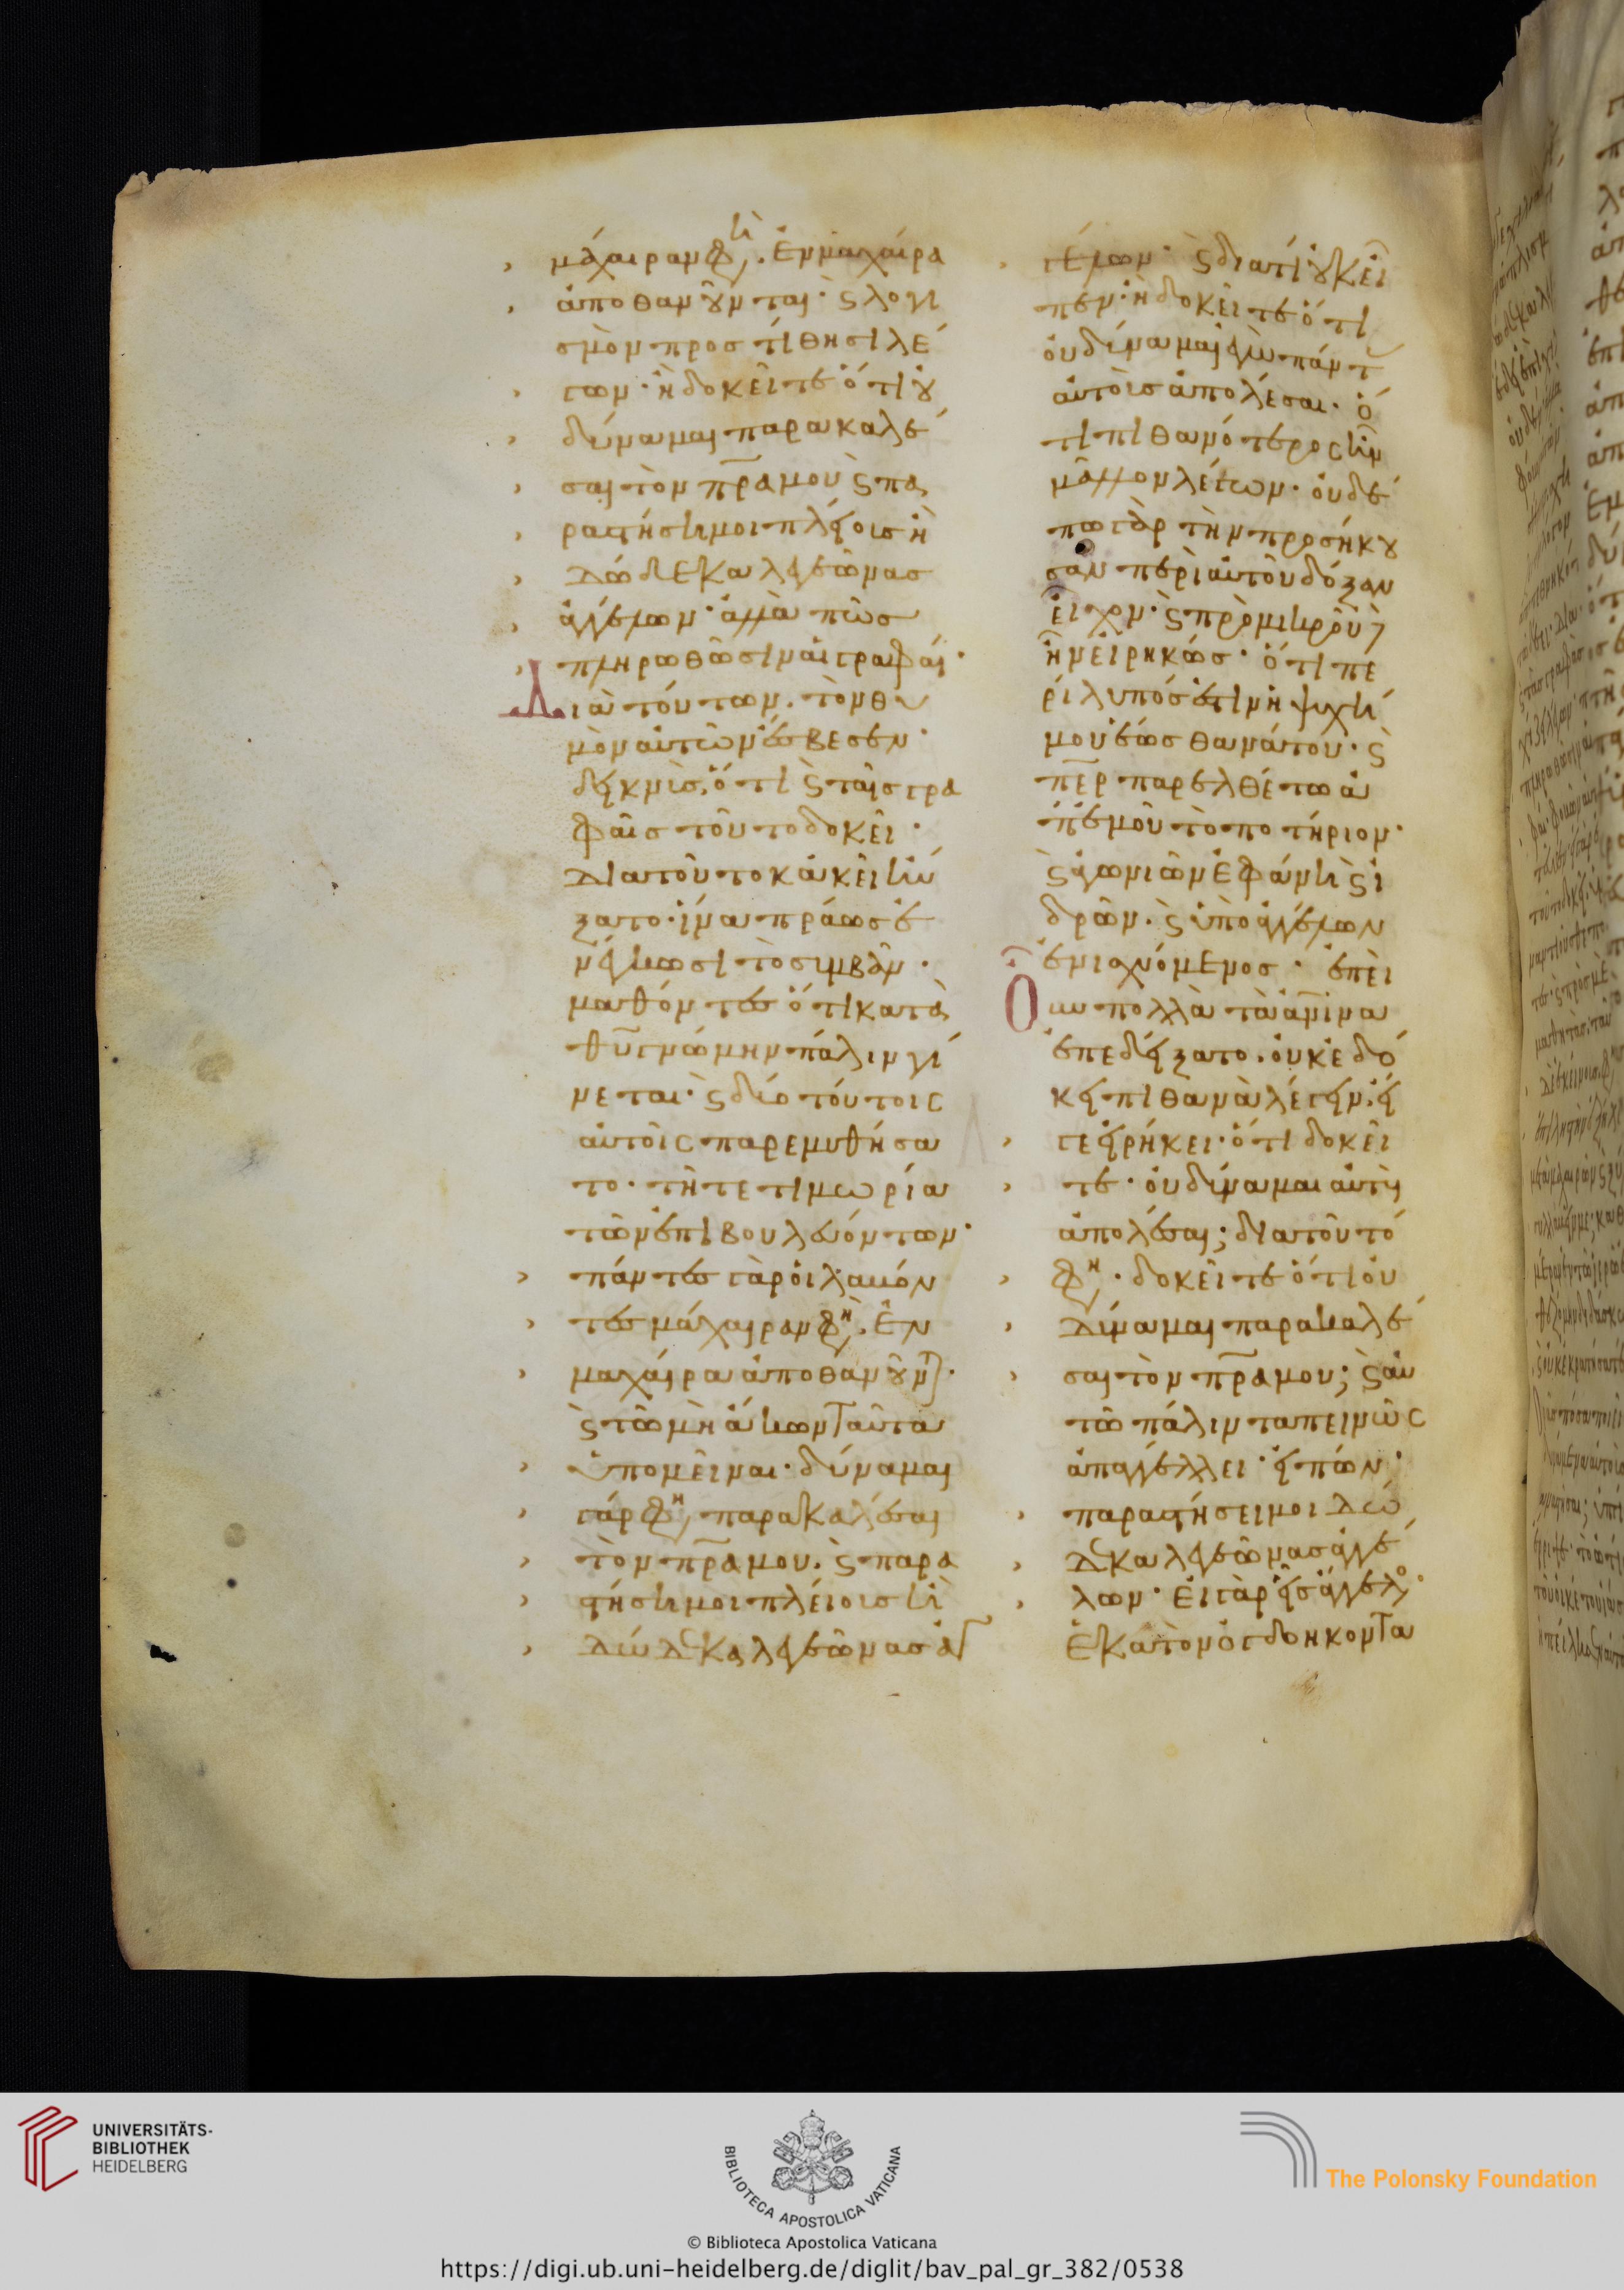 μάχαιραν φησὶ. ἐν μαχαίρα
ἀποθανοῦνται· καὶ λογι
σμὸν προστίθησι λέ
γων· ἢ δοκεῖτε ὅτι οὐ
δύναμαι παρακαλέ
σαι τὸν πρα μου καὶ πα
ραστήσει μοι πλείους ἢ
δώδεκα λεγεῶνας
ἀγγέλων· ἀλλὰ πῶς
πληρωθῶσιν αἱ γραφαί·
Διὰ τούτων. τὸν θυ
μὸν αὐτῶν ἔσβεσεν·
δεικνὺς, ὅτι καὶ ταῖς γρα
φαῖς τοῦτο δοκεῖ·
Διὰ τοῦτο κἀκεῖ ηὔ
ξατο· ἵνα πράως ἐ
νέγκωσι τὸ συμβὰν·
μαθόντες ὅτι κατὰ
θυ γνώμην πάλιν γί
νεται· καὶ δύο τούτοις
αὐτοῖς παρεμυθήσα
το· τῆ τε τιμωρία
τῶν ἐπιβουλευόντων·
πάντες γὰρ οἱ λαβόν
τες μάχαιραν φησὶν. ἐν
μαχαίρα ἀποθανοῦνται·
καὶ τῶ μὴ ἄκοντα ταῦτα
ὑπομεῖναι· δύναμαι
γάρ φησι, παρακαλέσαι
τὸν πρα μου. καὶ παρα
στήσει μοι πλείους ἢ
δώδεκα λεγεῶνας ἀγ
γέλων· καὶ διατί οὐκ εἶ
πεν· ἢ δοκεῖτε ὅτι
οὐ δύναμαι ἐγὼ πάντας
αὐτοὺς ἀπολέσαι· ὅ
τι πιθανότερος ἦν
μᾶλλον λέγων· οὐδέ
πω γὰρ τὴν προσήκου
σαν περὶ αὐτοῦ δόξαν
εἶχον· καὶ πρὸ μικροῦ δὲ
ἦν εἰρηκὼς· ὅτι πε
ρίλυπός ἐστιν ἡ ψυχή
μου ἕως θανάτου· καὶ
περ παρελθέτω ἀ
π' ἐμοῦ τὸ ποτήριον·
καὶ ἀγωνιῶν ἐφάνη καὶ ἱ
δρῶν· καὶ ὑπὸ ἀγγέλων
ἐνισχυόμενος· ἐπεὶ
Οὖν πολλὰ τὰ ἀνινα
ἐπεδείξατο. οὐκ ἐδό
κει πιθανὰ λέγειν· εἴ
γε εἰρήκει· ὅτι δοκεῖ
τε· οὐ δύναμαι αὐτοὺς
ἀπολέσαι; διὰ τοῦτό
φησιν· δοκεῖτε ὅτι οὐ
δύναμαι παρακαλέ
σαι τὸν πρα μου; καὶ αὐ
τὸ πάλιν ταπεινῶς
ἀπαγγέλλει· εἰπὼν·
παραστήσει μοι δώ
δεκα λεγεῶνας ἀγγέ
λων· Εἰ γὰρ εἷς ἄγγελος·
ἑκατὸν ὀγδοήκοντα
UNIVERSITÄTS-
BIBLIOTHEK
HEIDELBERG
BIBLIOTECA APOSTOLICA VATICANA
The Polonsky Foundation
© Biblioteca Apostolica Vaticana
https://digi.ub.uni-heidelberg.de/diglit/bav_pal_gr_382/0538